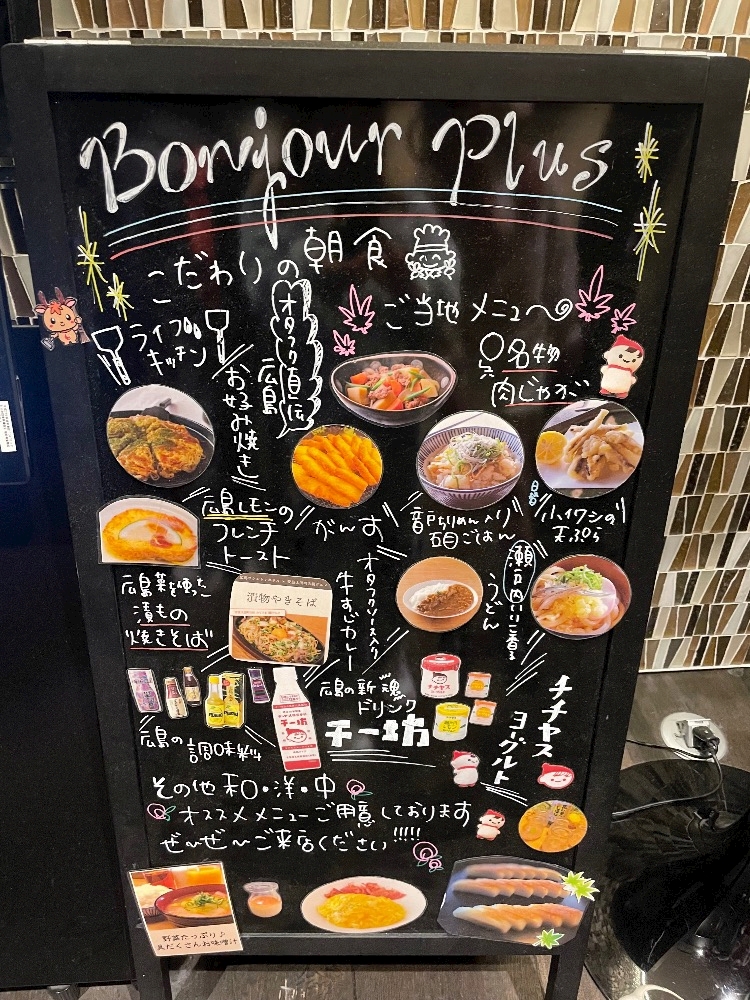 Bonjour Plus
こだわりの朝食
ご当地メニュー
ライブ
キッチン
オタフク直伝
広島
お好み焼き
名物
肉じゃが
広島レモンの
フレンチ
トースト
がんす
音戸ちりめん入り
五目ごはん
小イワシの
天ぷら
広島菜を使った
漬もの
焼きそば
漬物やきそば
オタフクソース入り
牛すじカレー
瀬戸内いりこ香る
うどん
広島の
調味料
広島の新魂
ドリンク
チー坊
チー坊
チチヤス
チチヤス
ヨーグルト
その他 和・洋・中
オススメメニューご用意しております
ぜ〜ぜ〜ご来店ください!!!!!
野菜たっぷり♪
具だくさんお味噌汁